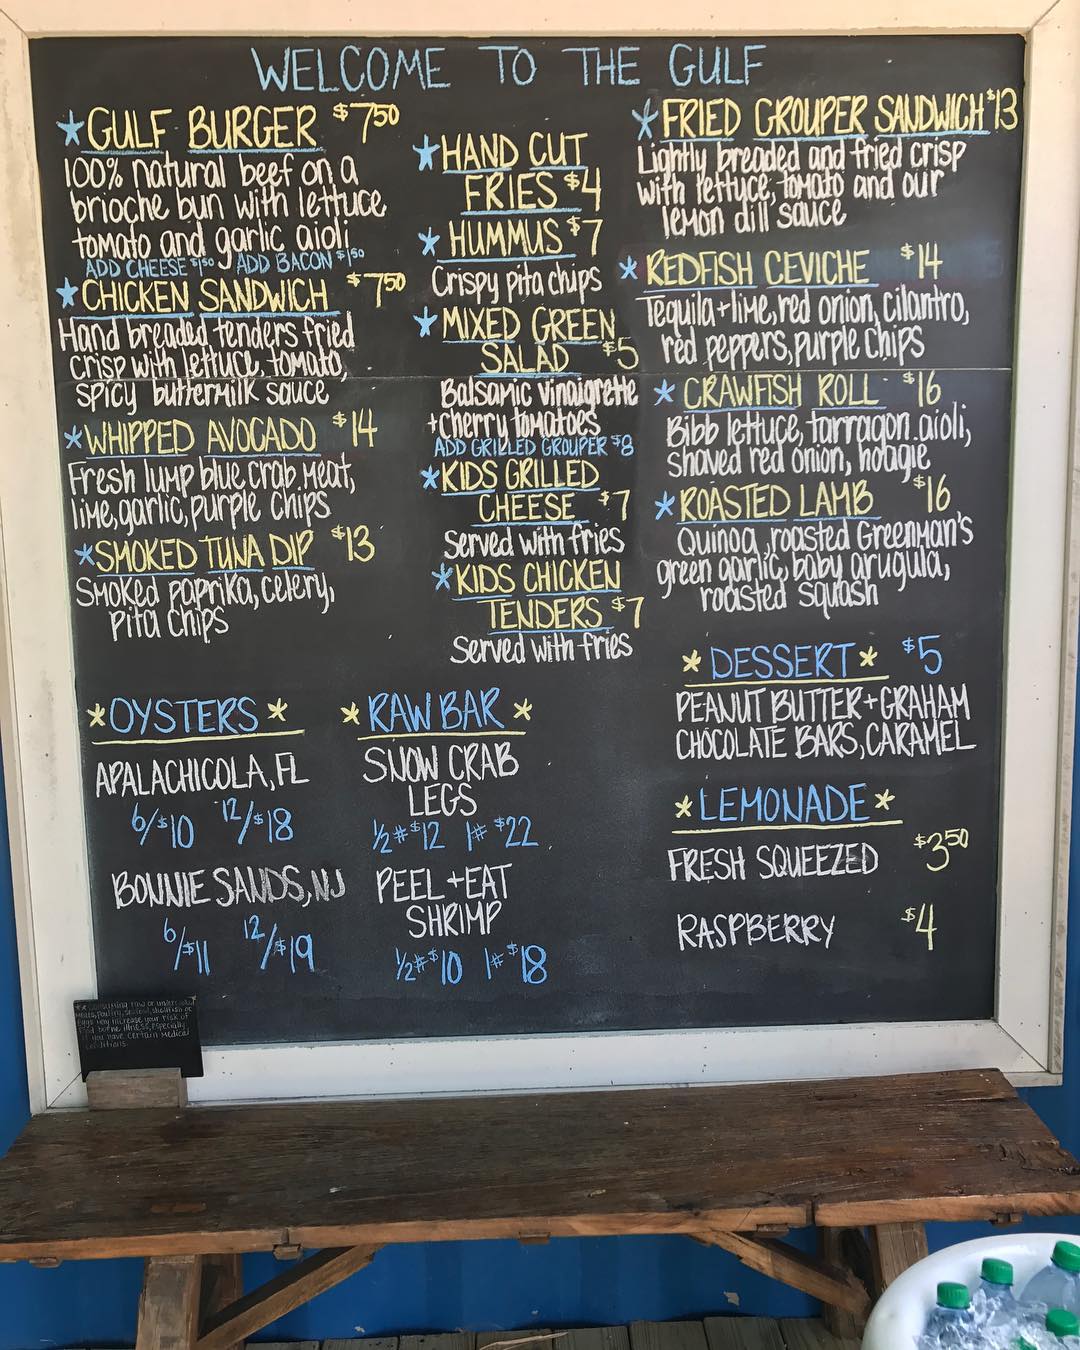 WELCOME TO THE GULF
*GULF BURGER $7⁵⁰
100% natural beef on a
brioche bun with lettuce
tomato and garlic aioli
ADD CHEESE $1⁵⁰ ADD BACON $1⁵⁰
*CHICKEN SANDWICH $7⁵⁰
Hand breaded tenders fried
crisp with lettuce, tomato,
spicy buttermilk sauce
*WHIPPED AVOCADO $14
Fresh lump blue crab meat,
lime, garlic, purple chips
*SMOKED TUNA DIP $13
Smoked paprika, celery,
Pita chips
*HAND CUT
FRIES $4
*HUMMUS $7
Crispy pita chips
*MIXED GREEN
SALAD $5
Balsamic vinaigrette
+cherry tomatoes
ADD GRILLED GROUPER $8
*KIDS GRILLED
CHEESE $7
Served with fries
*KIDS CHICKEN
TENDERS $7
Served with fries
*FRIED GROUPER SANDWICH $13
Lightly breaded and fried crisp
with lettuce, tomato and our
lemon dill sauce
*REDFISH CEVICHE $14
Tequila+lime, red onion, cilantro,
red peppers, purple chips
*CRAWFISH ROLL $16
Bibb lettuce, tarragon aioli,
shaved red onion, hoagie
*ROASTED LAMB $16
Quinoa, roasted Greenman's
green garlic, baby arugula,
roasted squash
*OYSTERS*
APALACHICOLA, FL
6/$10 12/$18
BONNIE SANDS, NJ
6/$11 12/$19
*RAW BAR*
SNOW CRAB
LEGS
½# $12 1# $22
PEEL +EAT
SHRIMP
½# $10 1# $18
*DESSERT* $5
PEANUT BUTTER+GRAHAM
CHOCOLATE BARS, CARAMEL
*LEMONADE*
FRESH SQUEEZED $3⁵⁰
RASPBERRY $4
**Consuming raw or undercooked
meats, poultry, seafood, shellfish or
eggs may increase your risk of
food borne illness, especially
if you have certain medical
conditions.